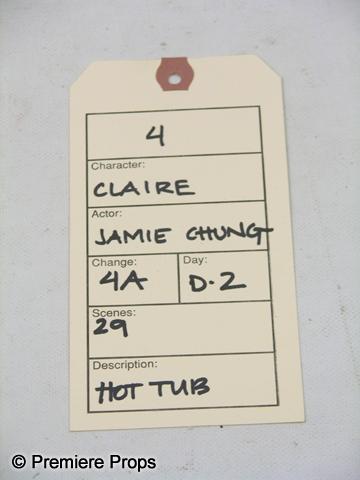 4
Character:
CLAIRE
Actor:
JAMIE CHUNG
Change: Day:
4A D.2
Scenes:
29
Description:
HOT TUB
© Premiere Props